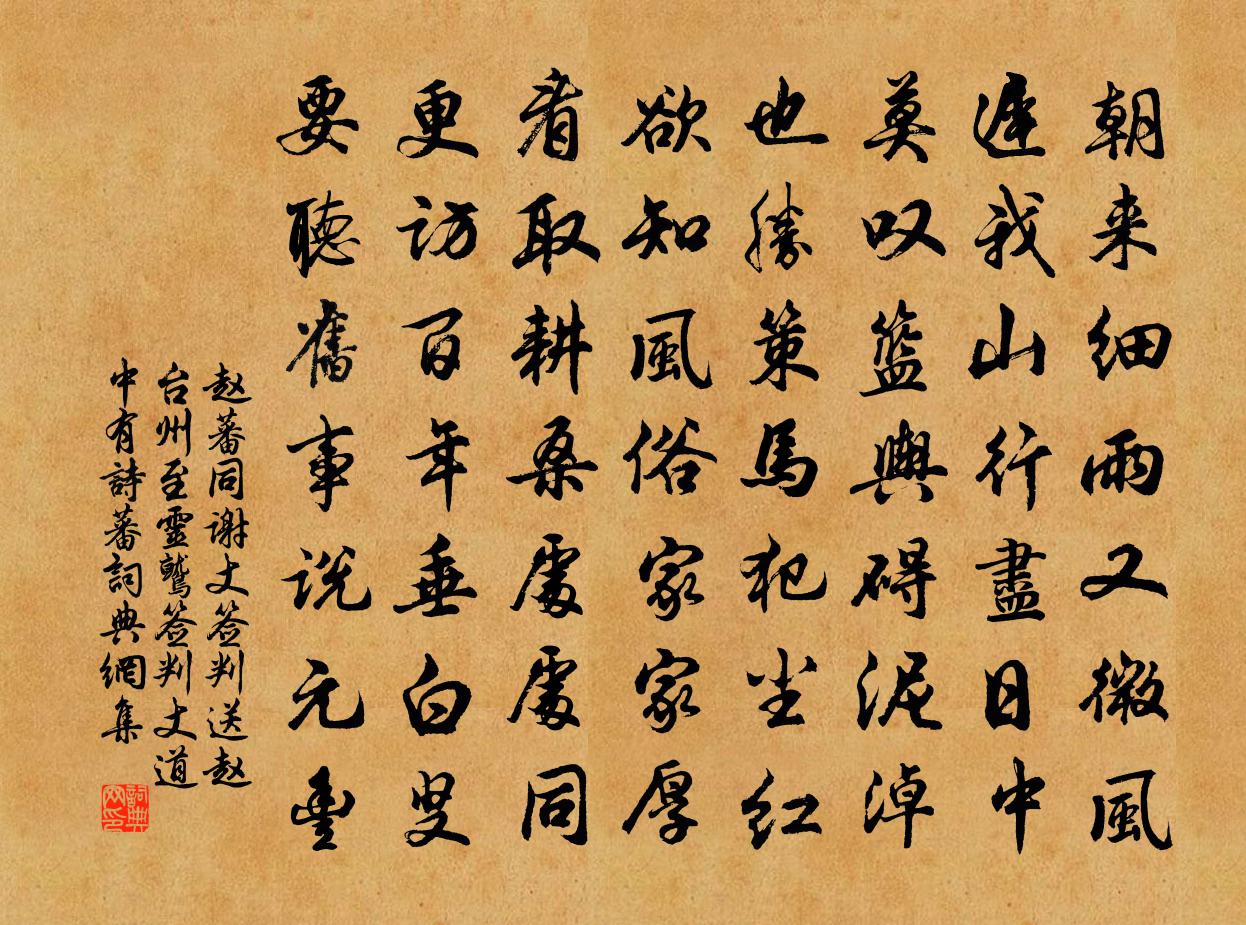 朝来细雨又微風
遲我山行盡日中
莫叹籃輿碍泥淖
也勝策馬犯尘红
欲知風俗家家厚
看取耕桑處處同
更访百年垂白叟
要聽舊事说元豐
赵蕃同谢丈签判送赵
台州至靈鷲签判丈道
中有詩蕃詞典網集
詞典网印